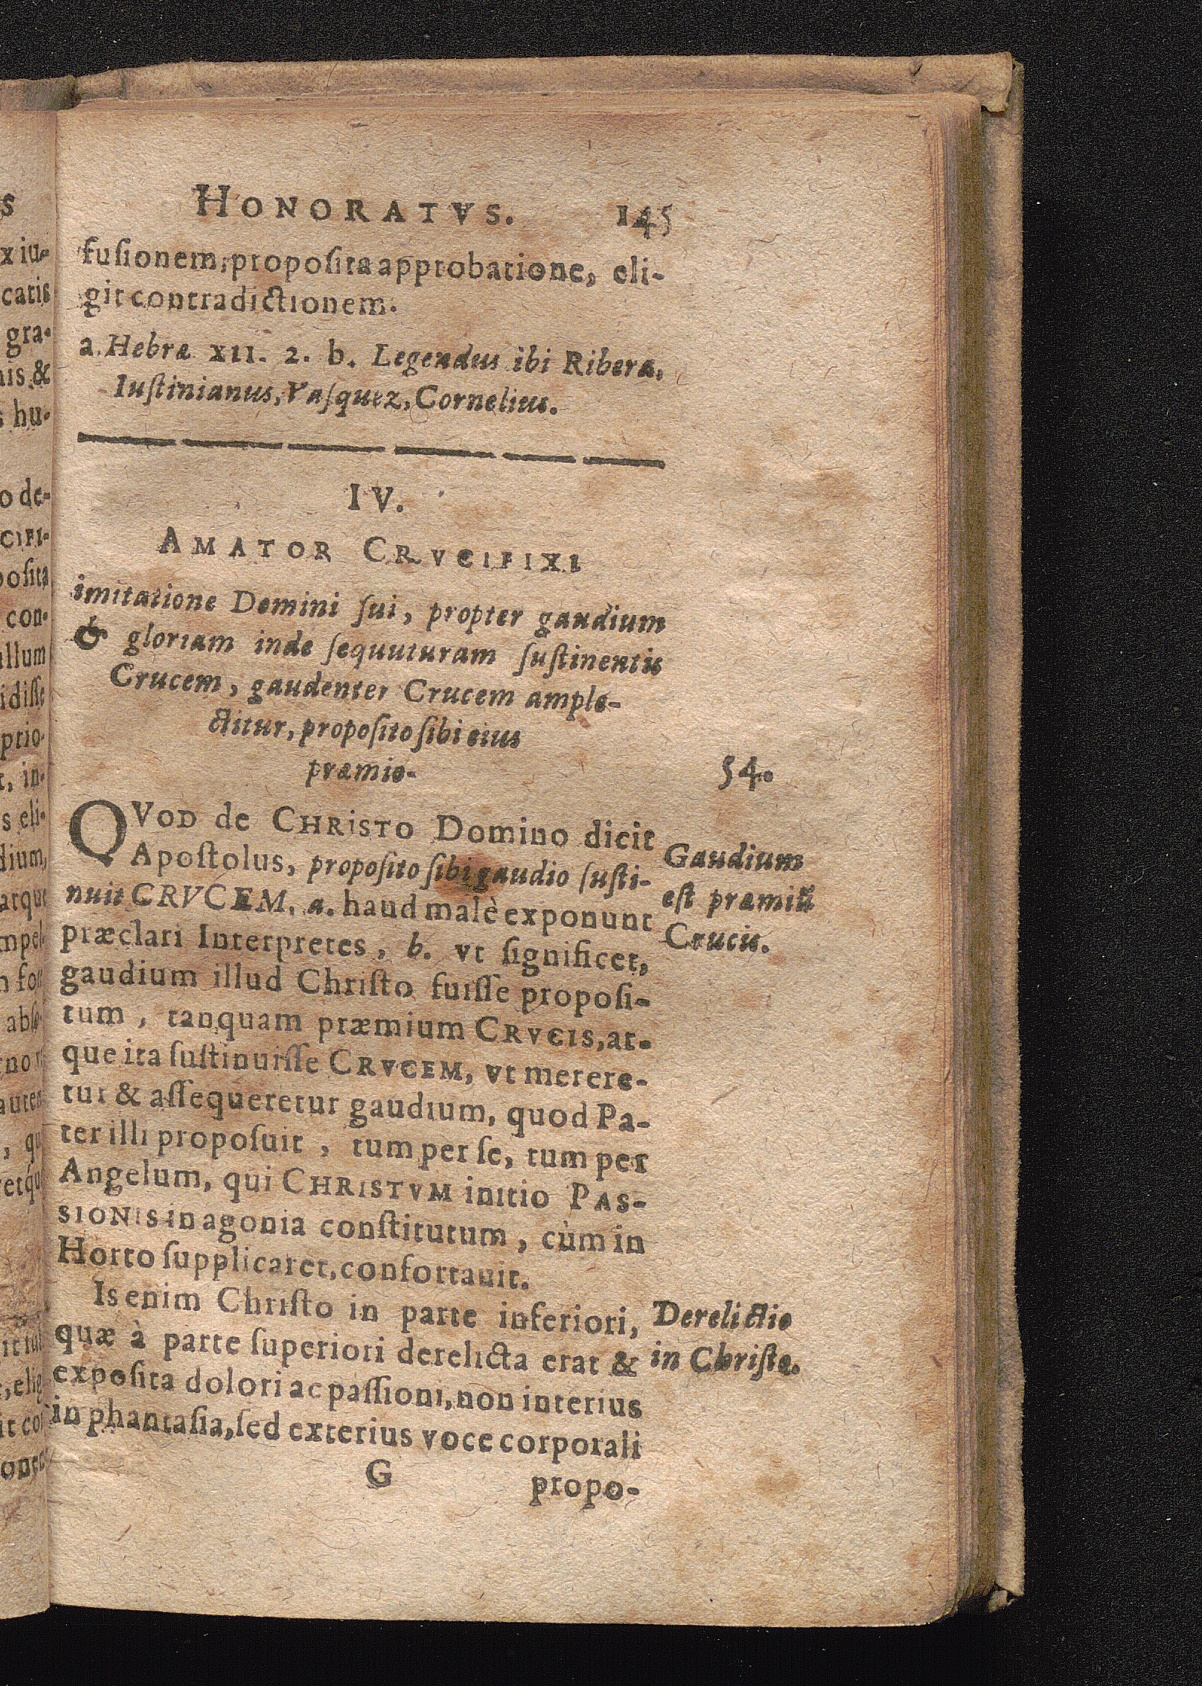 HONORATVS. 145
fusionem, proposita approbatione, eli-
git contradictionem.
a. Hebræ XII. 2. b. Legendus ibi Ribera,
Iustinianus, Vasquez, Cornelius.
IV.
AMATOR CRVCIFIXI
imitatione Domini sui, propter gaudium
& gloriam inde sequuturam sustinentis
Crucem, gaudenter Crucem ample-
ctitur, proposito sibi eius
præmio.
54.
QVOD de CHRISTO Domino dicit
Apostolus, proposito sibi gaudio susti-
nuit CRVCEM, a. haud malè exponunt
præclari Interpretes, b. vt significet,
gaudium illud Christo fuisse proposi-
tum, tanquam præmium CRVCIS, at-
que ita sustinuisse CRVCEM, vt merere-
tur & assequeretur gaudium, quod Pa-
ter illi proposuit, tum per se, tum per
Angelum, qui CHRISTVM initio PAS-
SIONIS in agonia constitutum, cùm in
Horto supplicaret, confortauit.
Gaudium
est præmiū
Crucis.
Is enim Christo in parte inferiori,
quæ à parte superiori derelicta erat &
exposita dolori ac passioni, non interius
in phantasia, sed exterius voce corporali
Derelictio
in Christo.
G propo-